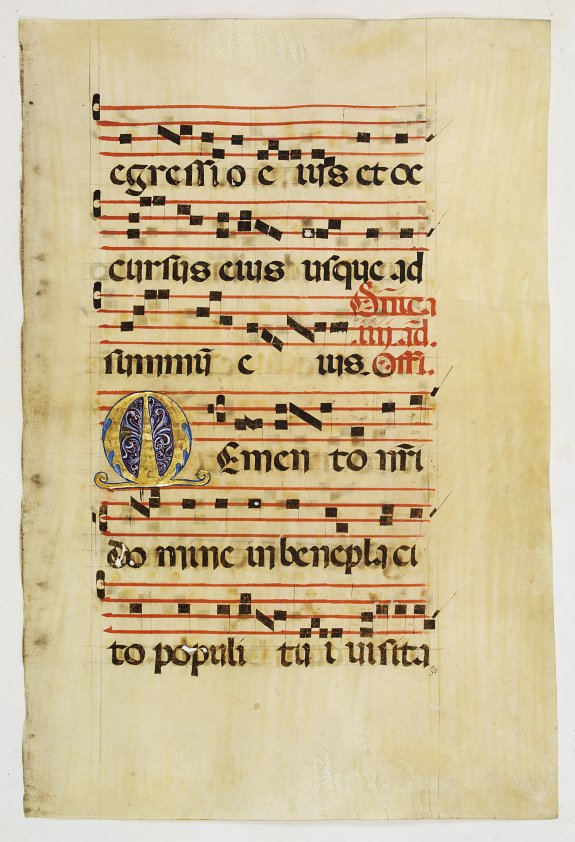 egressio e iuſs et oc
curſus eius uſque ad
summū e ius. Dn̄ica
.iiij. ad̄.
Offi.
Memen to nr̄i
do mine in beneplaci
to populi tu i uiſita